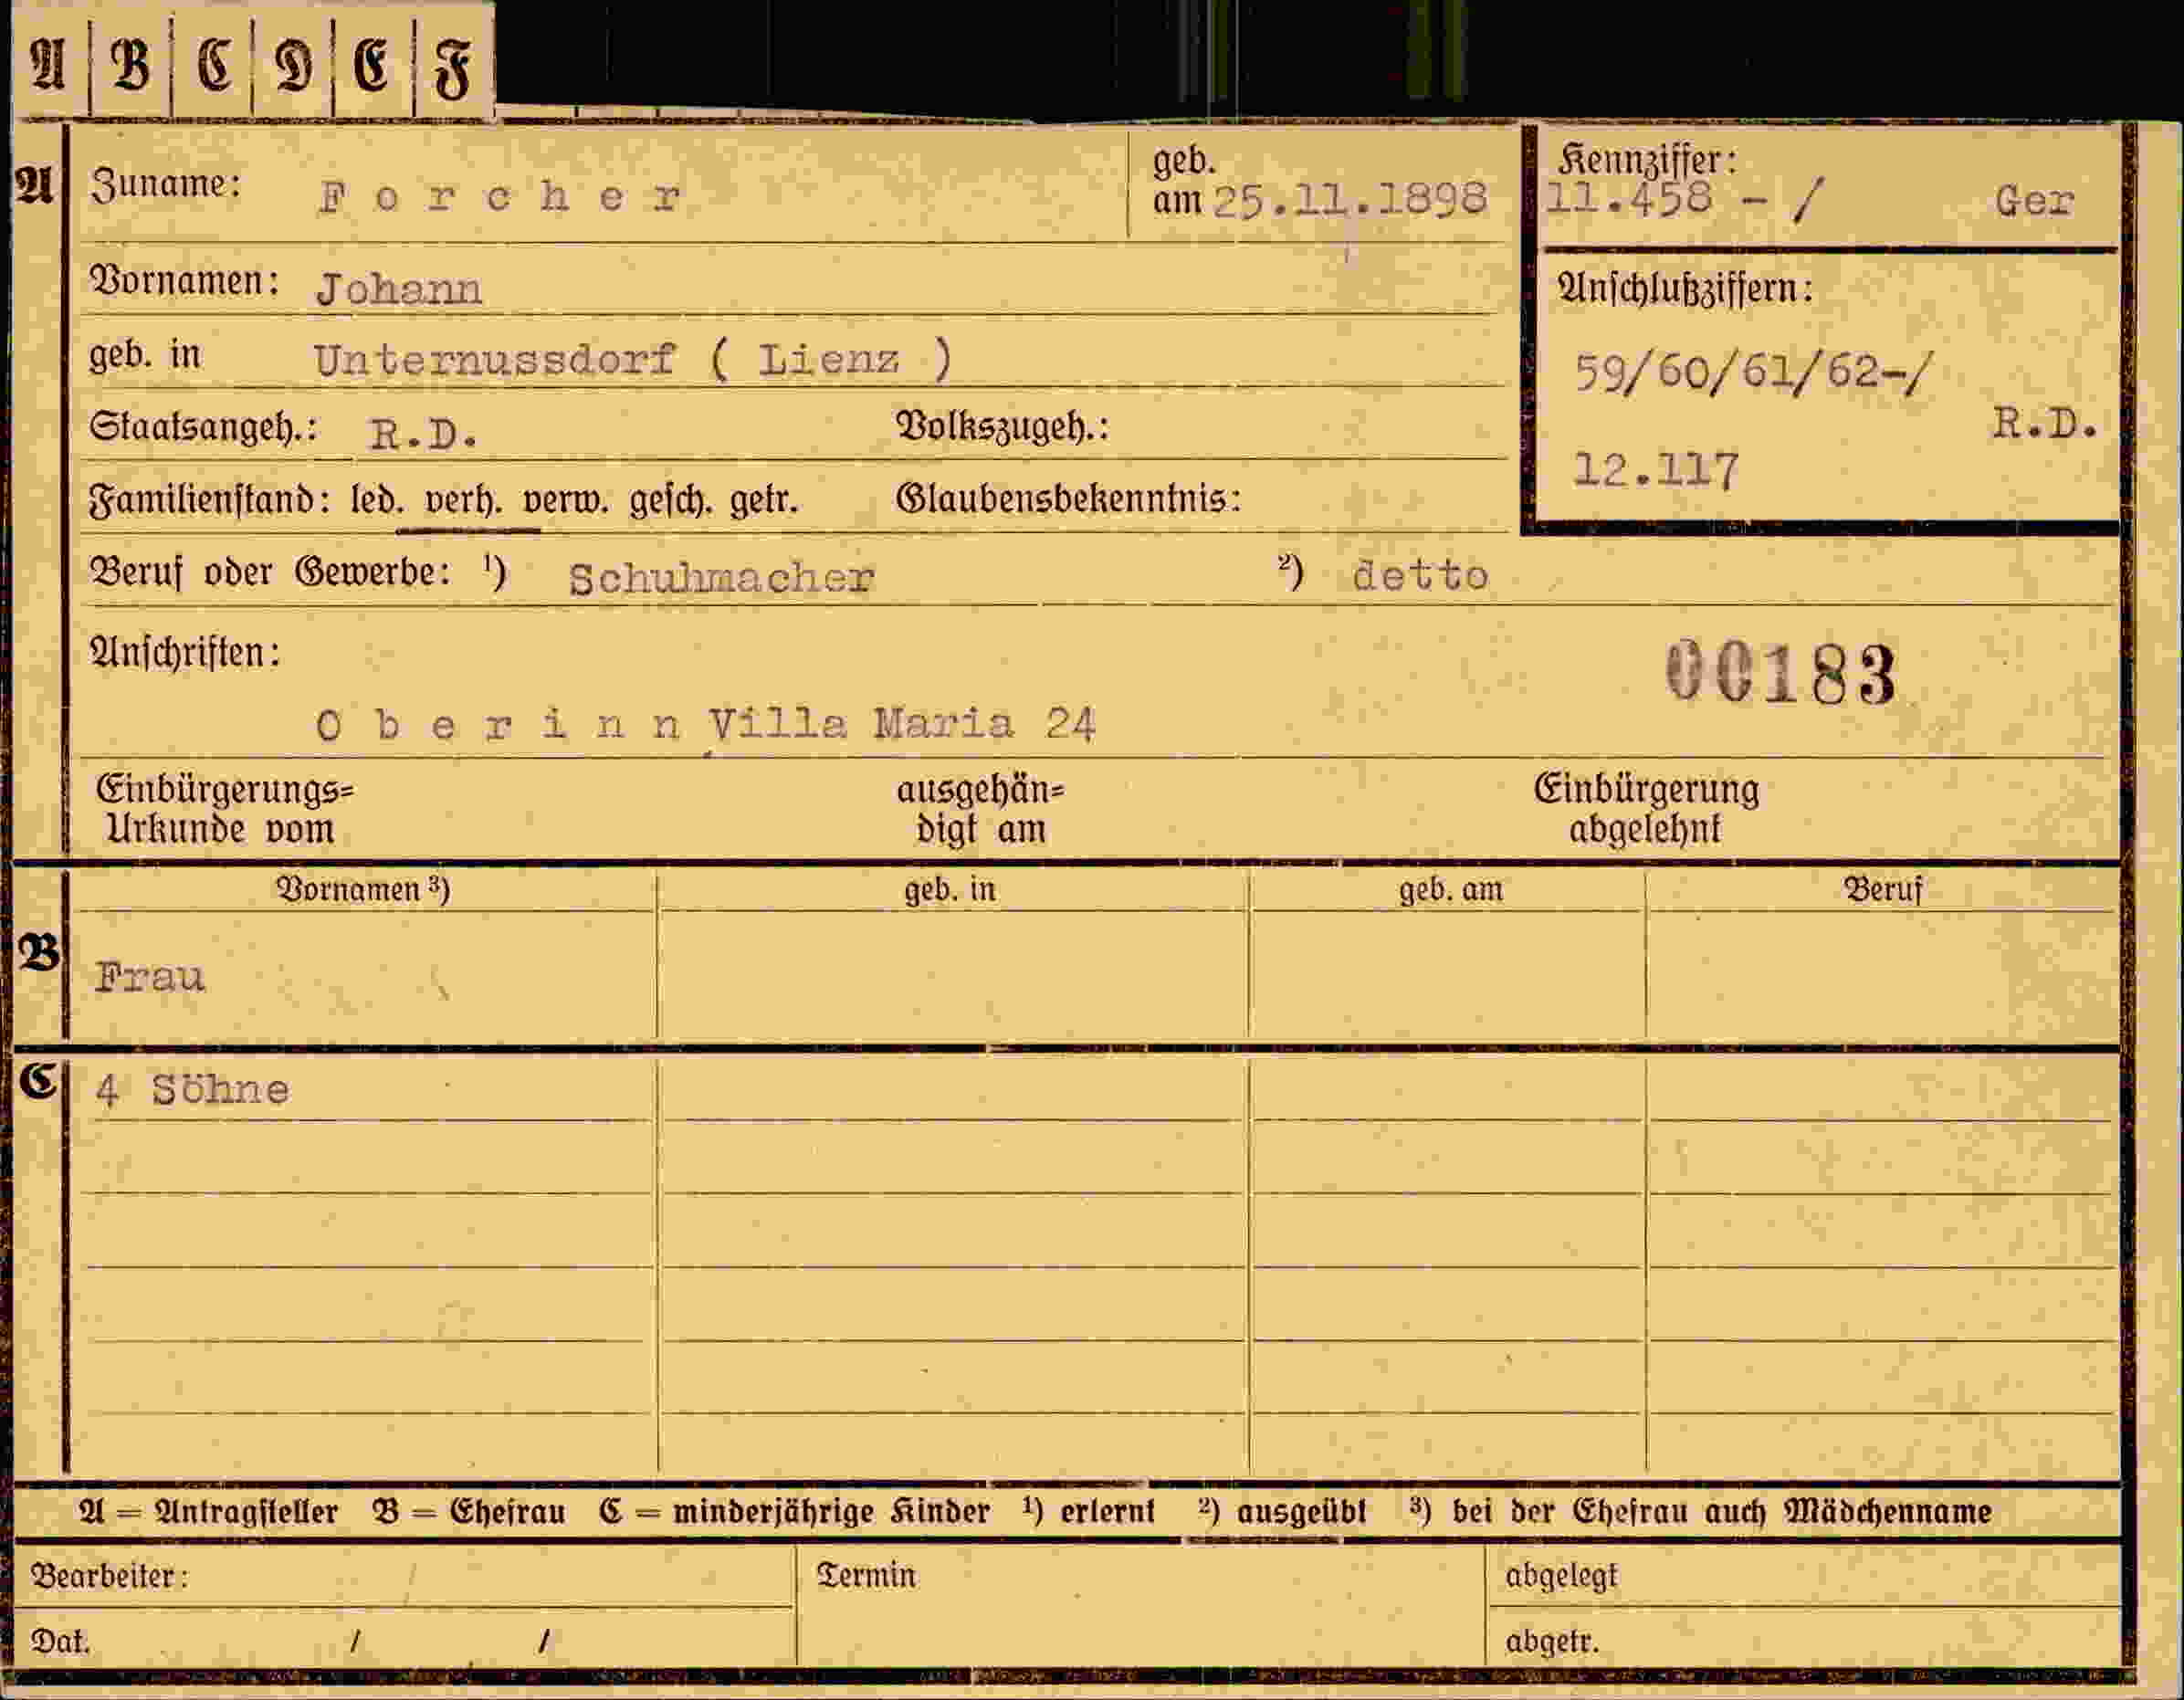 A B C D E F
A Zuname: F o r c h e r geb. am 25.11.1898
Kennziffer:
11.458 - / Ger
Vornamen: Johann
geb. in Unternussdorf ( Lienz )
Staatsangeh.: R.D. Volkszugeh.:
Familienstand: led. verh. verw. gesch. getr. Glaubensbekenntnis:
Anschlußziffern:
59/60/61/62-/
R.D.
12.117
Beruf oder Gewerbe: ¹) Schuhmacher ²) detto
Anschriften:
00183
O b e r i n n Villa Maria 24
Einbürgerungs=
Urkunde vom
ausgehän=
digt am
Einbürgerung
abgelehnt
Vornamen ³) geb. in geb. am Beruf
B Frau
C 4 Söhne
A = Antragsteller B = Ehefrau C = minderjährige Kinder ¹) erlernt ²) ausgeübt ³) bei der Ehefrau auch Mädchenname
Bearbeiter: Termin abgelegt
Dat. / / abgetr.